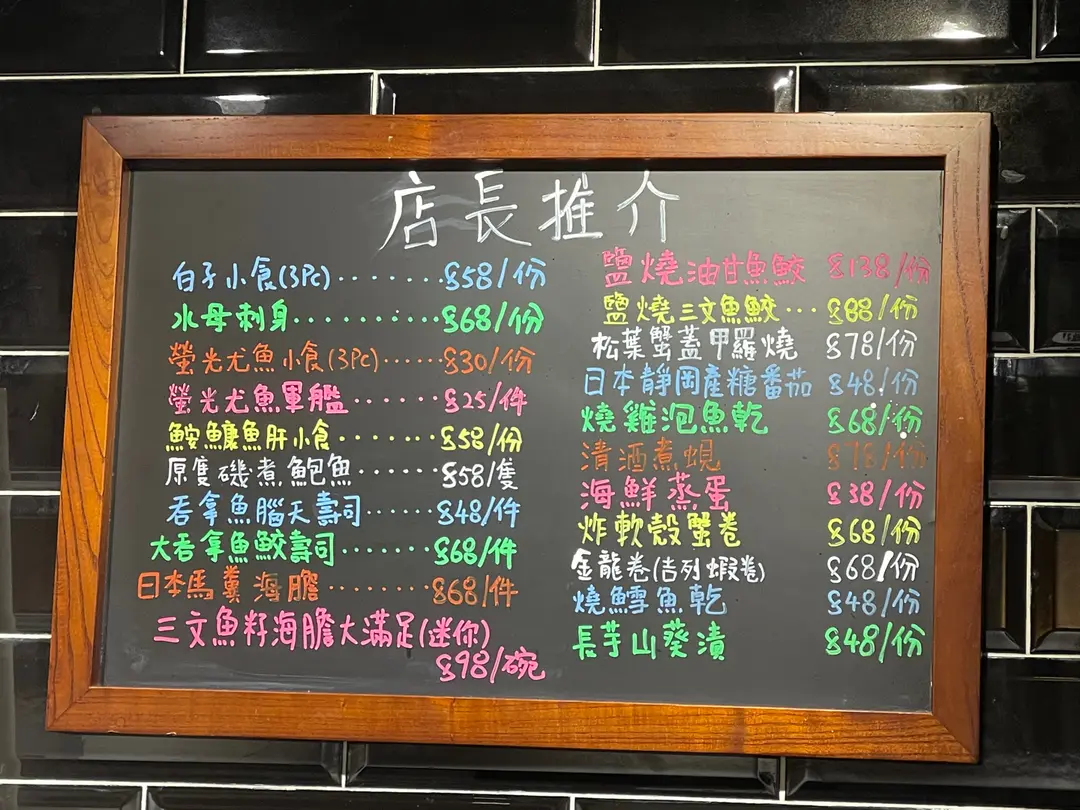 店長推介
白子小食(3Pc)........$58/份
水母刺身..........$68/份
螢光尤魚小食(3Pc)......$30/份
螢光尤魚軍艦......$25/件
鮟鱇魚肝小食.......$58/份
原隻磯煮鮑魚......$58/隻
吞拿魚腦天壽司......$48/件
大吞拿魚鮫壽司.......$68/件
日本馬糞海膽........$68/件
三文魚籽海膽大滿足(迷你)
$98/碗
鹽燒油甘魚鮫 $138/份
鹽燒三文魚鮫... $88/份
松葉蟹蓋甲羅燒 $78/份
日本靜岡產糖番茄 $48/份
燒雞泡魚乾 $68/份
清酒煮蜆 $78/份
海鮮蒸蛋 $38/份
炸軟殼蟹卷 $68/份
金龍卷(吉列蝦卷) $68/份
燒鱈魚乾 $48/份
長芋山葵漬 $48/份